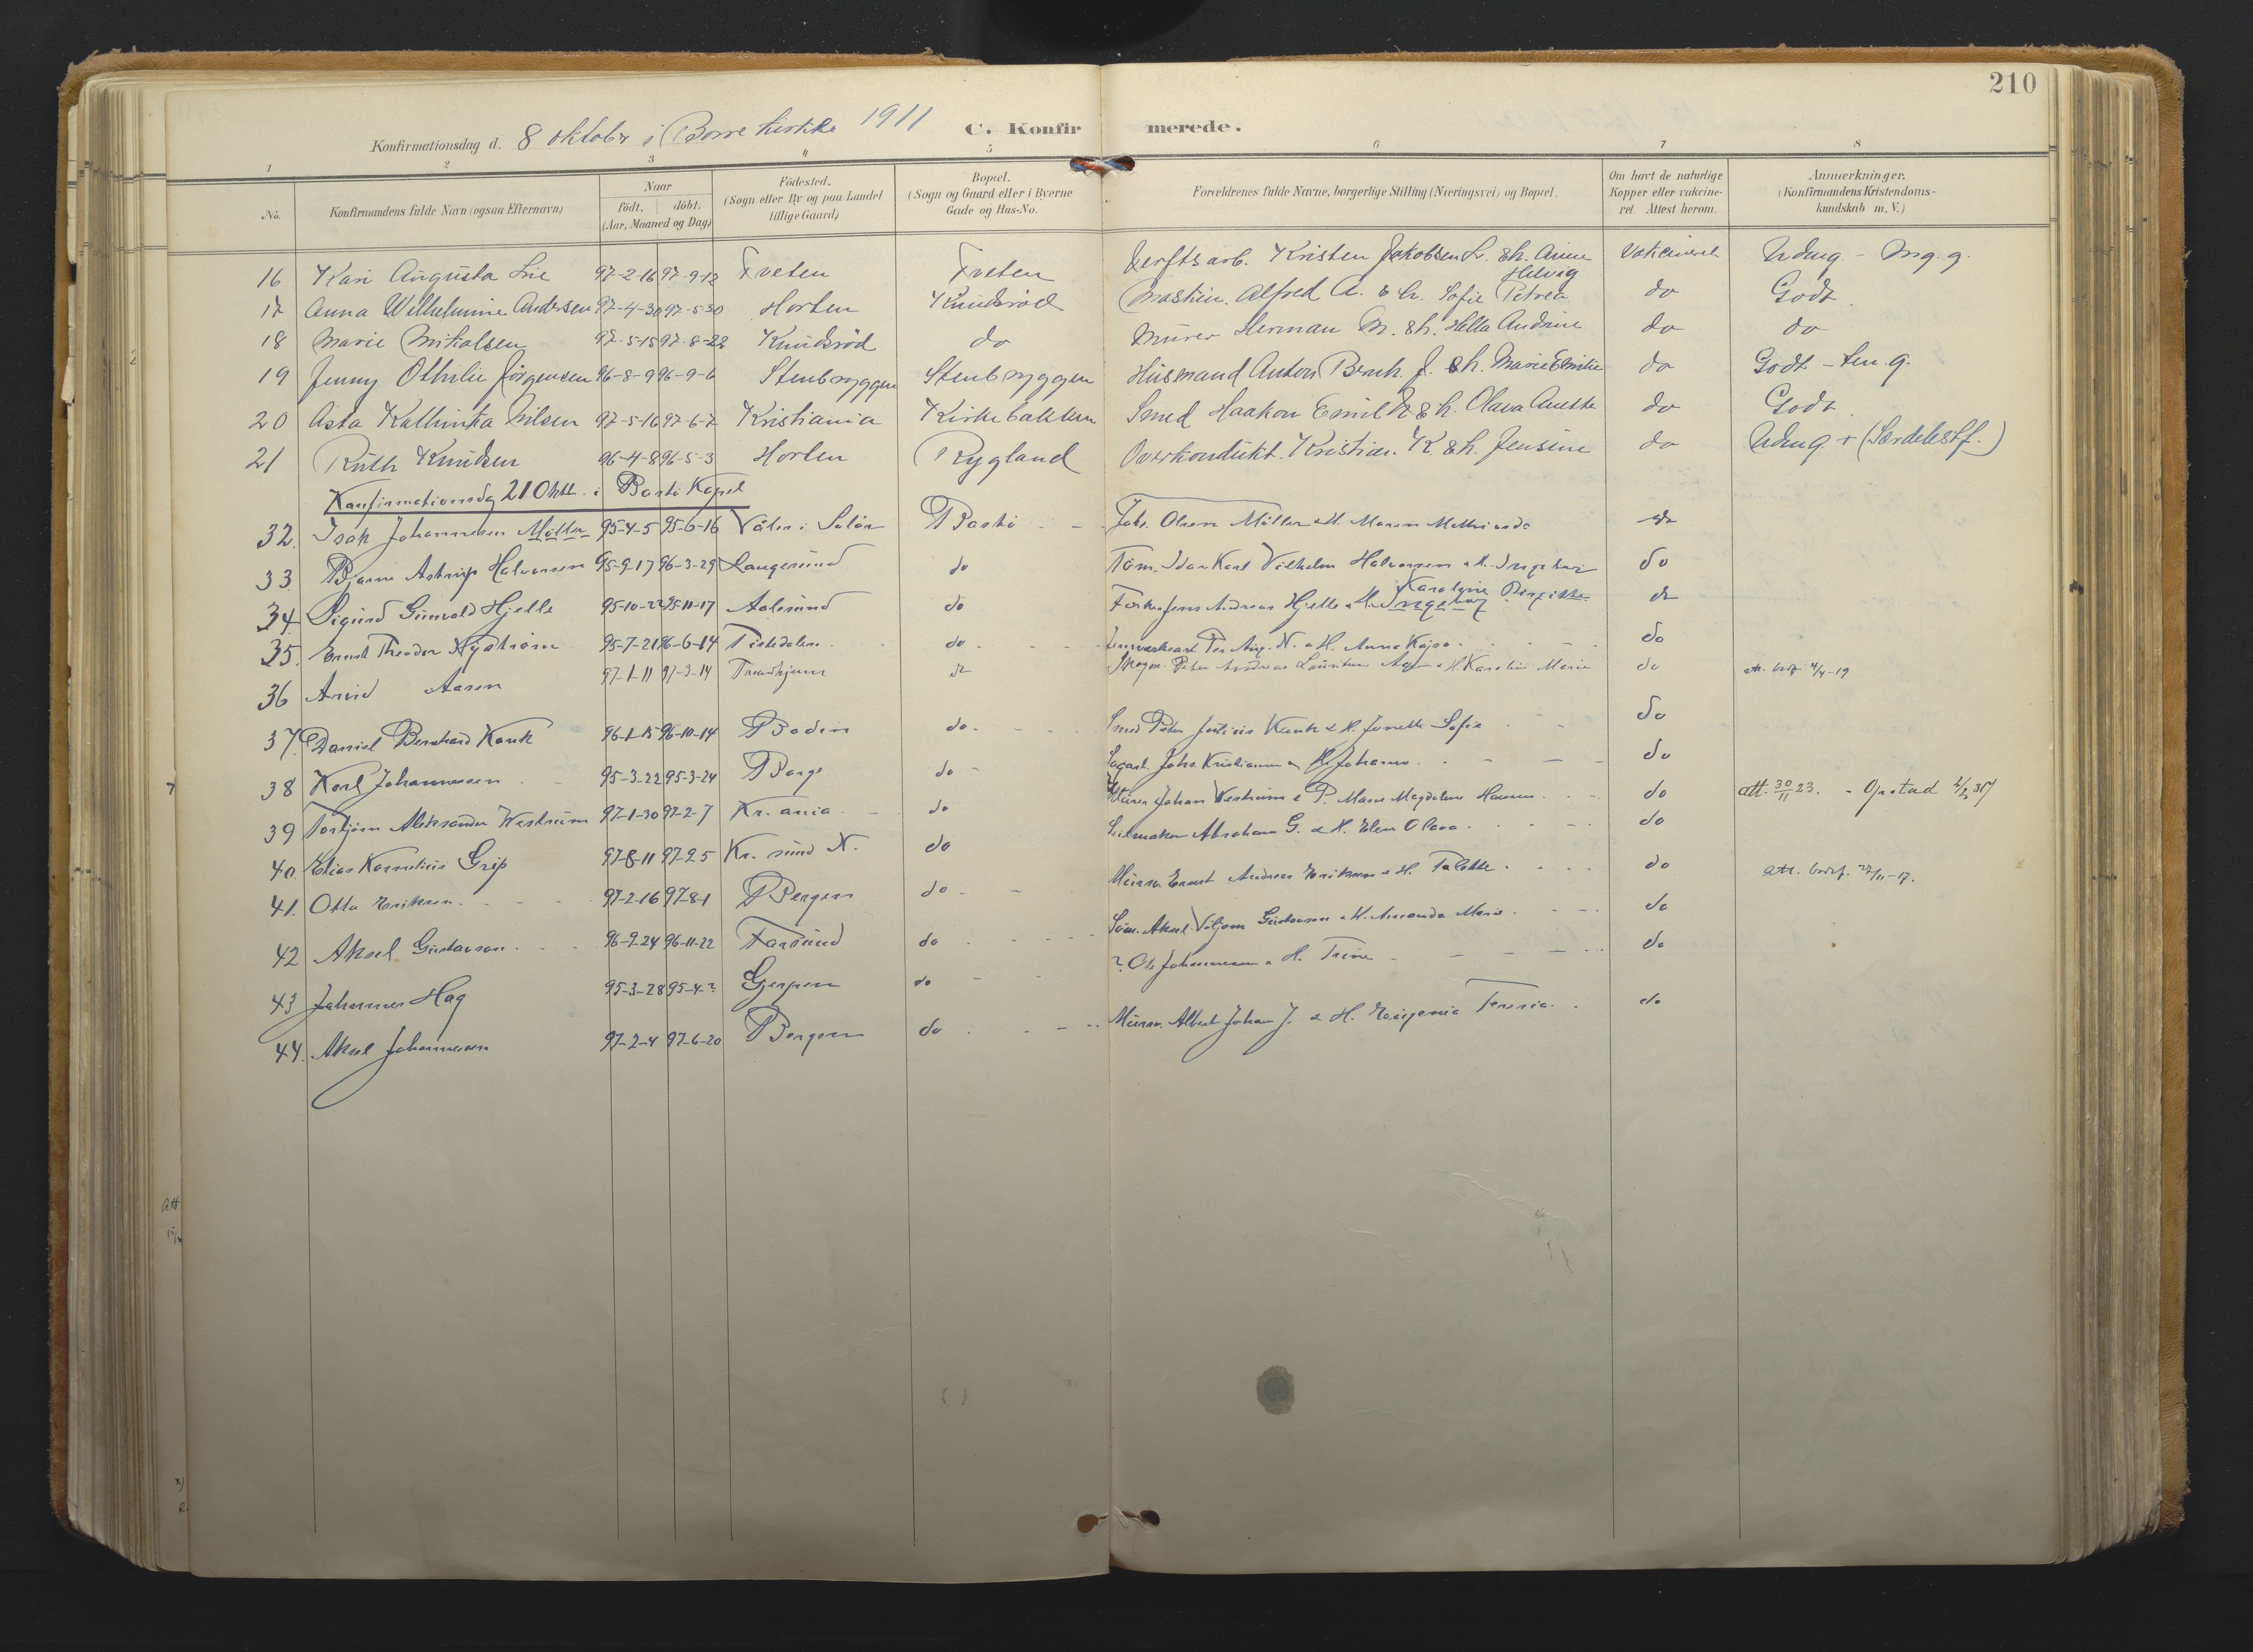 210
Konfirmationsdag d. 8 oktober i Borre kirke 1911 C. Konfirmerede.
1 2 3 4 5 6 7 8
No. Konfirmandens fulde Navn (ogsaa Efternavn) Naar födt. döbt. (Aar, Maaned og Dag) Födested. (Sogn eller By og paa Landet tillige Gaard) Bopæl. (Sogn og Gaard eller i Byerne Gade og Hus-No. Forældrenes fulde Navne, borgerlige Stilling (Næringsvei) og Bopæl. Om havt de naturlige Kopper eller vakcineret Attest herom. Anmærkninger. (Konfirmandens Kristendomskundskab m. V.)
16 Kari Augusta Lie 97-2-16 97-9-12 Tveten Tveten Verftsarb. Kristen Jakobsen L. & h. Anne Helvig Vakcineret Udmg - Mg. g.
17 Anna Wilhelmine Andersen 97-4-30 97-5-30 Horten Knudsröd Maskin. Alfred A. & h. Sofie Petrea do Godt.
18 Marie Mikalsen 97-5-15 97-8-22 Knudsröd do Murer Herman M. & h. Hella Andrine do do
19 Jenny Othilie Jörgensen 96-8-9 96-9-6 Stenbryggen Stenbryggen Husmand Anton Bernh. J. & h. Marie Emilie do Godt - Ten. g.
20 Asta Kathinka Nilsen 97-5-16 97-6-7 Kristiania Kirkebakken Smed Haakon Emil N. & h. Olava Anette do Godt.
21 Ruth Knudsen 96-4-8 96-5-3 Horten Rygland Overkondukt. Kristian K. & h. Jensine do Udmg. + (Særdelest f.)
Konfirmationsdag 21 Oktb. i Bastö Kapel
32. Isak Johannesen Möller 95-4-5 95-6-16 Våler i Solör Bastö Joh. Olsen Möller & H. Maren do
33. Bjarne Astrup Halvorsen 95-9-17 96-3-29 Langesund do Töm. Karl Vilhelm Halvorsen & H. Ingeborg do
34. Sigurd Gunvald Hjelle 95-10-22 95-11-17 Aalesund do Jens Andreas Hjelle & H. Ingeborg Karoline Birgitte do
35. Ernst Theodor Nyström 95-7-21 96-6-14 Tistedalen do Per Aug. N. & H. Anna Kajsa do
36 Arvid Aasen 97-1-11 97-3-14 Trondhjem do Peter Andreas Lauritsen & H. Karoline Marie do att. 4/4-19
37. Daniel Bernhard Kauk 96-1-15 96-10-14 Bodin do Smed Peter Julius Kauk & H. Jonette Sofie do
38 Karl Johannessen 95-3-22 95-3-24 Borge do Sagarb. Johs. Kristiansen & H. Johanne do
39 Torbjörn Aleksander Westrum 97-1-30 97-2-7 Kr.ania do Murer Johan Westrum & P. Marie Magdalene Hansen do att. 30/11 23. - Opstad
40. Elias Kornelius Grip 97-8-11 97-9-5 Kr.sund N. do Seilmaker Abraham G. & H. Elen Olava do
41. Otto Eriksen 97-2-16 97-8-1 Bergen do Murer Ernst Andreas Eriksen & H. Talette do att. 22/11-17.
42 Aksel Gustavson 96-9-24 96-11-22 Farsund do Söm. Aksel Viljam Gustavson & H. Amanda Marie do
43 Johannes Hag 95-3-28 95-4-? Gjerpen do ? Ole Johannesen & H. Trine do
44. Aksel Johannesen 97-2-4 97-6-20 Bergen do Murer Albert Johan J. & H. Eugenia Teresia do